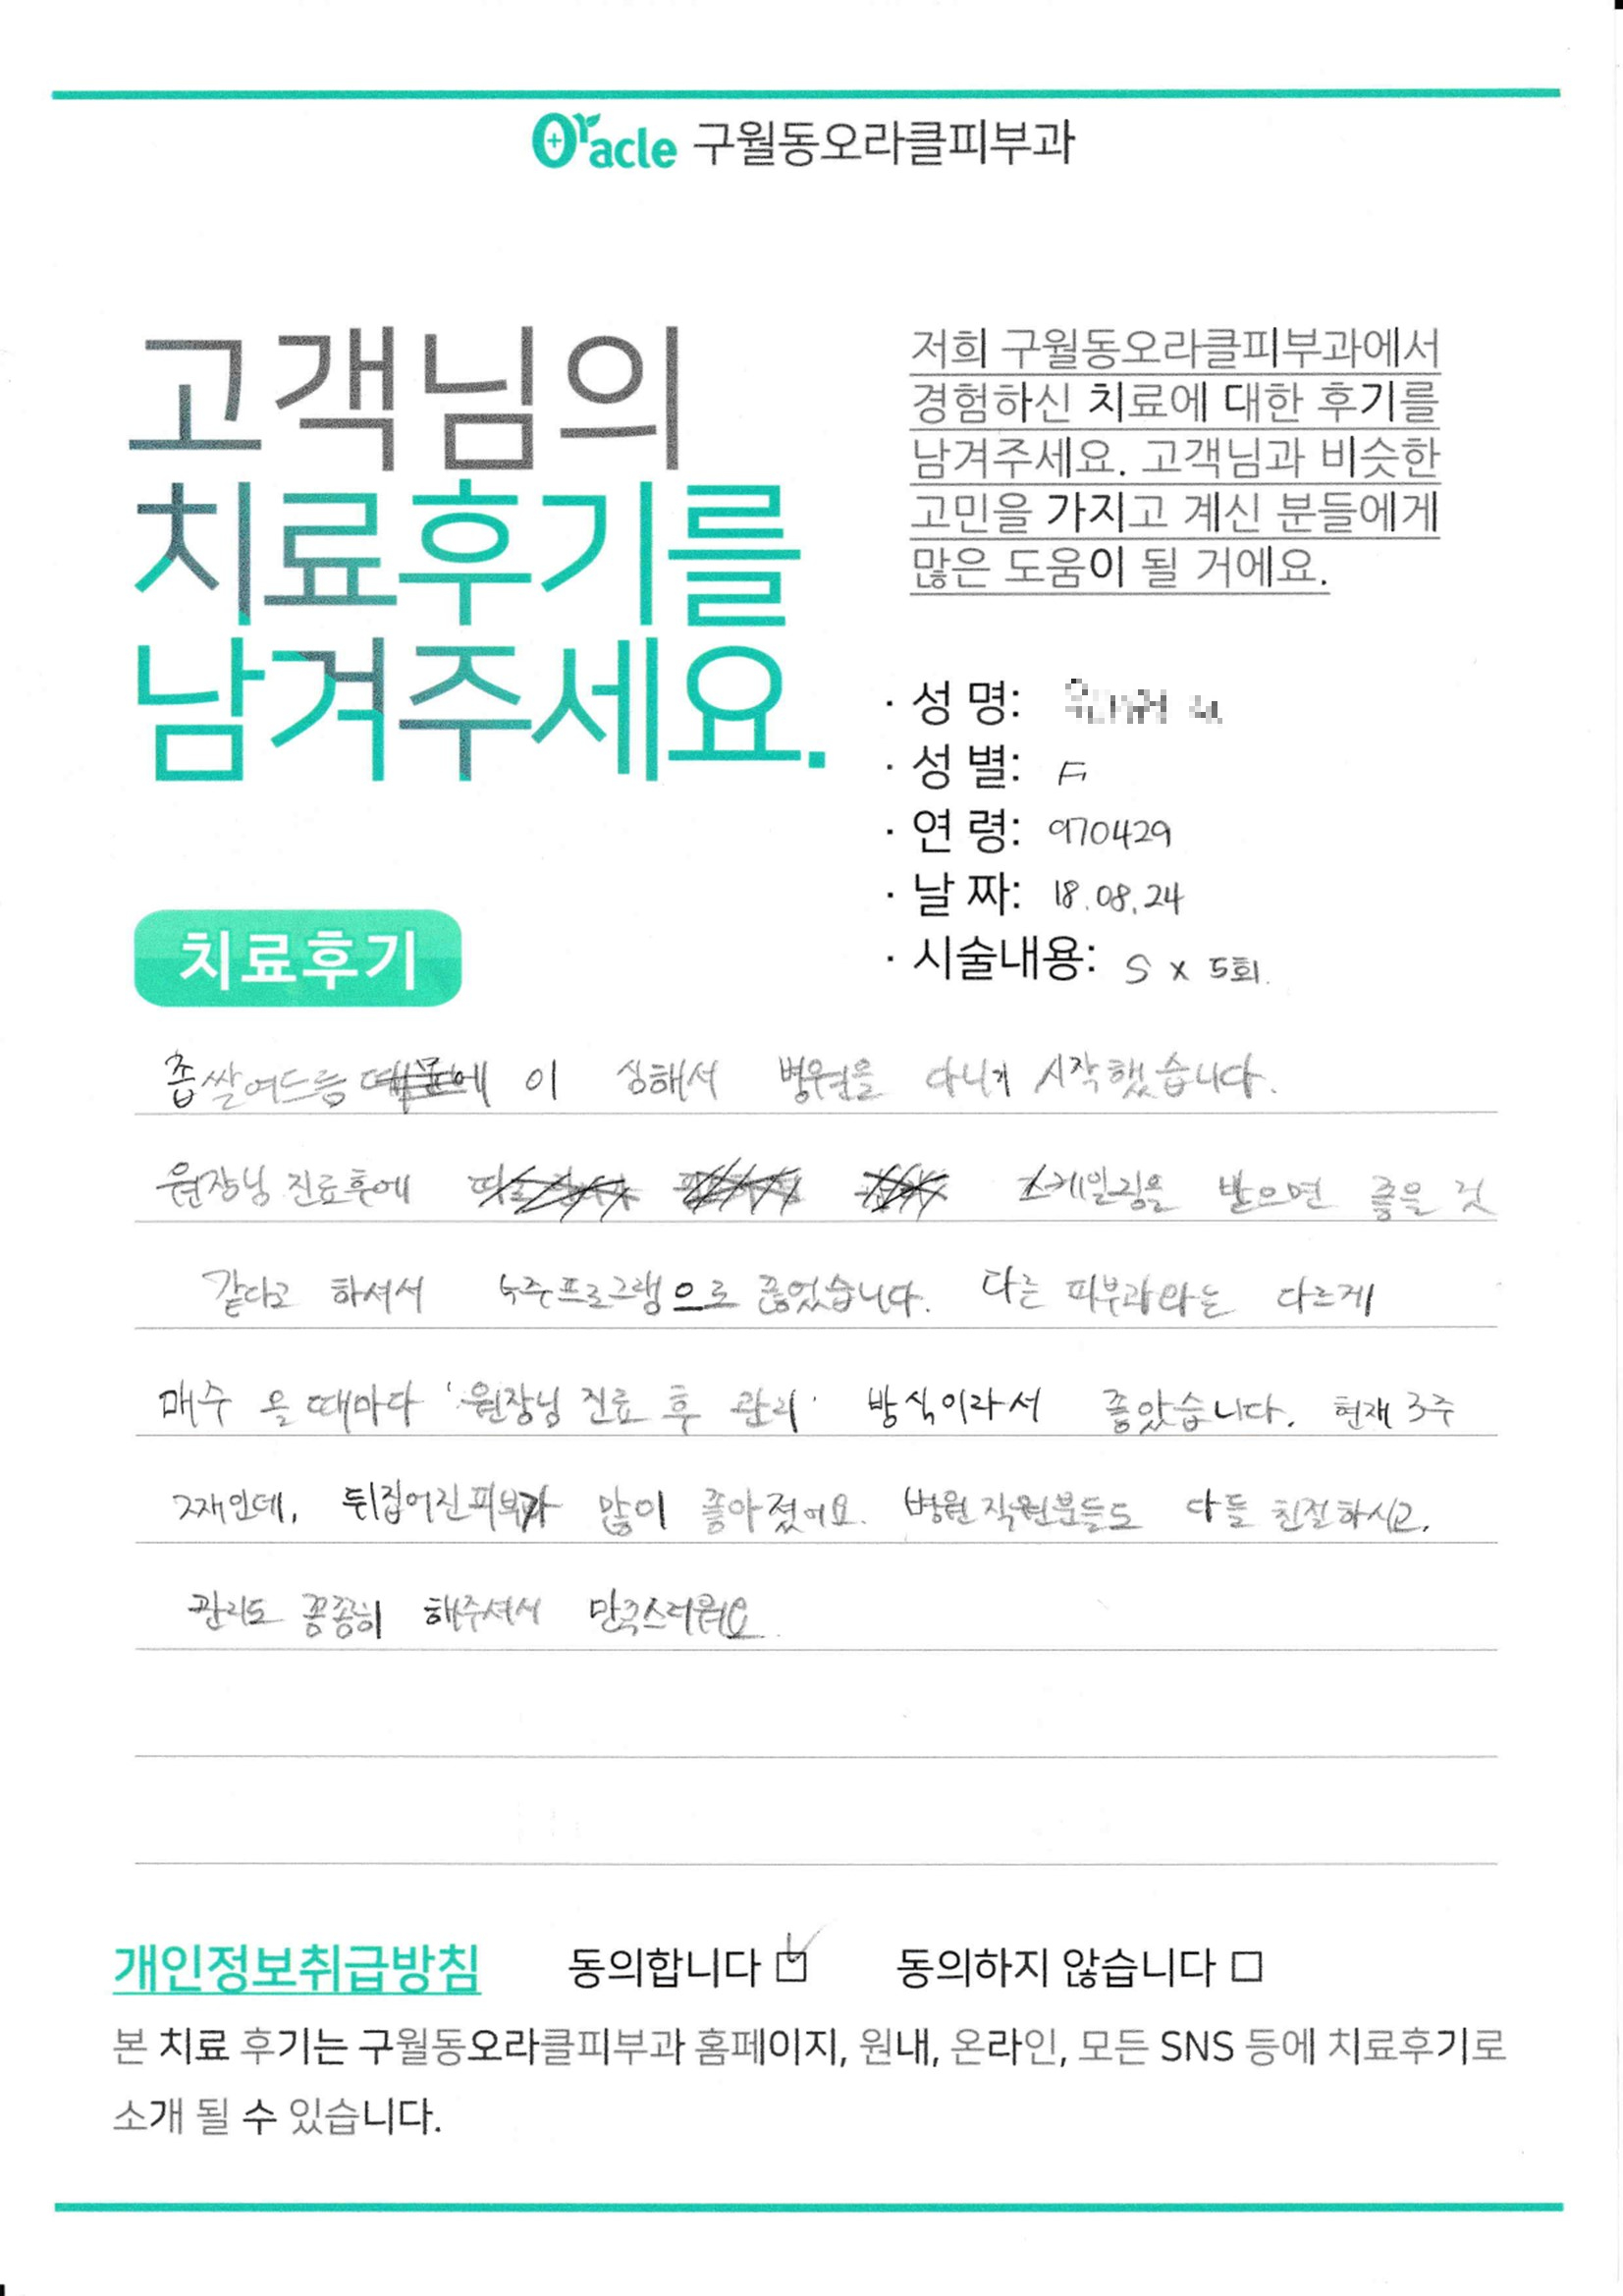 Oracle 구월동오라클피부과
고객님의
치료후기를
남겨주세요.
저희 구월동오라클피부과에서
경험하신 치료에 대한 후기를
남겨주세요. 고객님과 비슷한
고민을 가지고 계신 분들에게
많은 도움이 될 거에요.
· 성 명:
· 성 별: F
· 연 령: 970429
· 날 짜: 18.08.24
· 시술내용: S x 5회.
치료후기
좁쌀여드름 때문에 이 심해서 병원을 다니기 시작했습니다.
원장님 진료후에 스케일링을 받으면 좋을 것
같다고 하셔서 4주프로그램으로 끊었습니다. 다른 피부과와는 다르게
매주 올 때마다 '원장님 진료 후 관리' 방식이라서 좋았습니다. 현재 3주
2재인데, 뒤집어진피부가 많이 좋아졌어요. 병원 직원분들도 다들 친절하시고,
관리도 꼼꼼히 해주셔서 만족스러워요.
개인정보취급방침 동의합니다 동의하지 않습니다
본 치료 후기는 구월동오라클피부과 홈페이지, 원내, 온라인, 모든 SNS 등에 치료후기로
소개 될 수 있습니다.